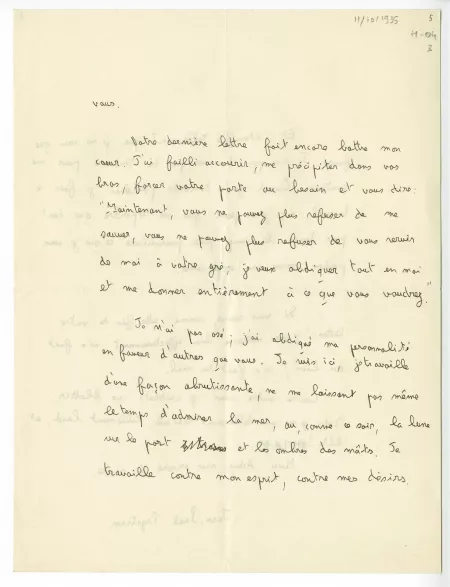 11/10/1935
5
4-04
3
vous.
Votre dernière lettre fait encore battre mon
coeur. J'ai failli accourir, me précipiter dans vos
bras, forcer votre porte au besoin et vous dire:
"Maintenant, vous ne pouvez plus refuser de me
sauver, vous ne pouvez plus refuser de vous servir
de moi à votre gré; je veux abdiquer tout en moi
et me donner entièrement à ce que vous voudrez."
Je n'ai pas osé; j'ai abdiqué ma personnalité
en faveur d'autres que vous. Je suis ici, je travaille
d'une façon abrutissante, ne me laissant pas même
le temps d'admirer la mer, ou, comme ce soir, la lune
sur le port et les ombres des mâts. Je
travaille contre mon esprit, contre mes désirs.